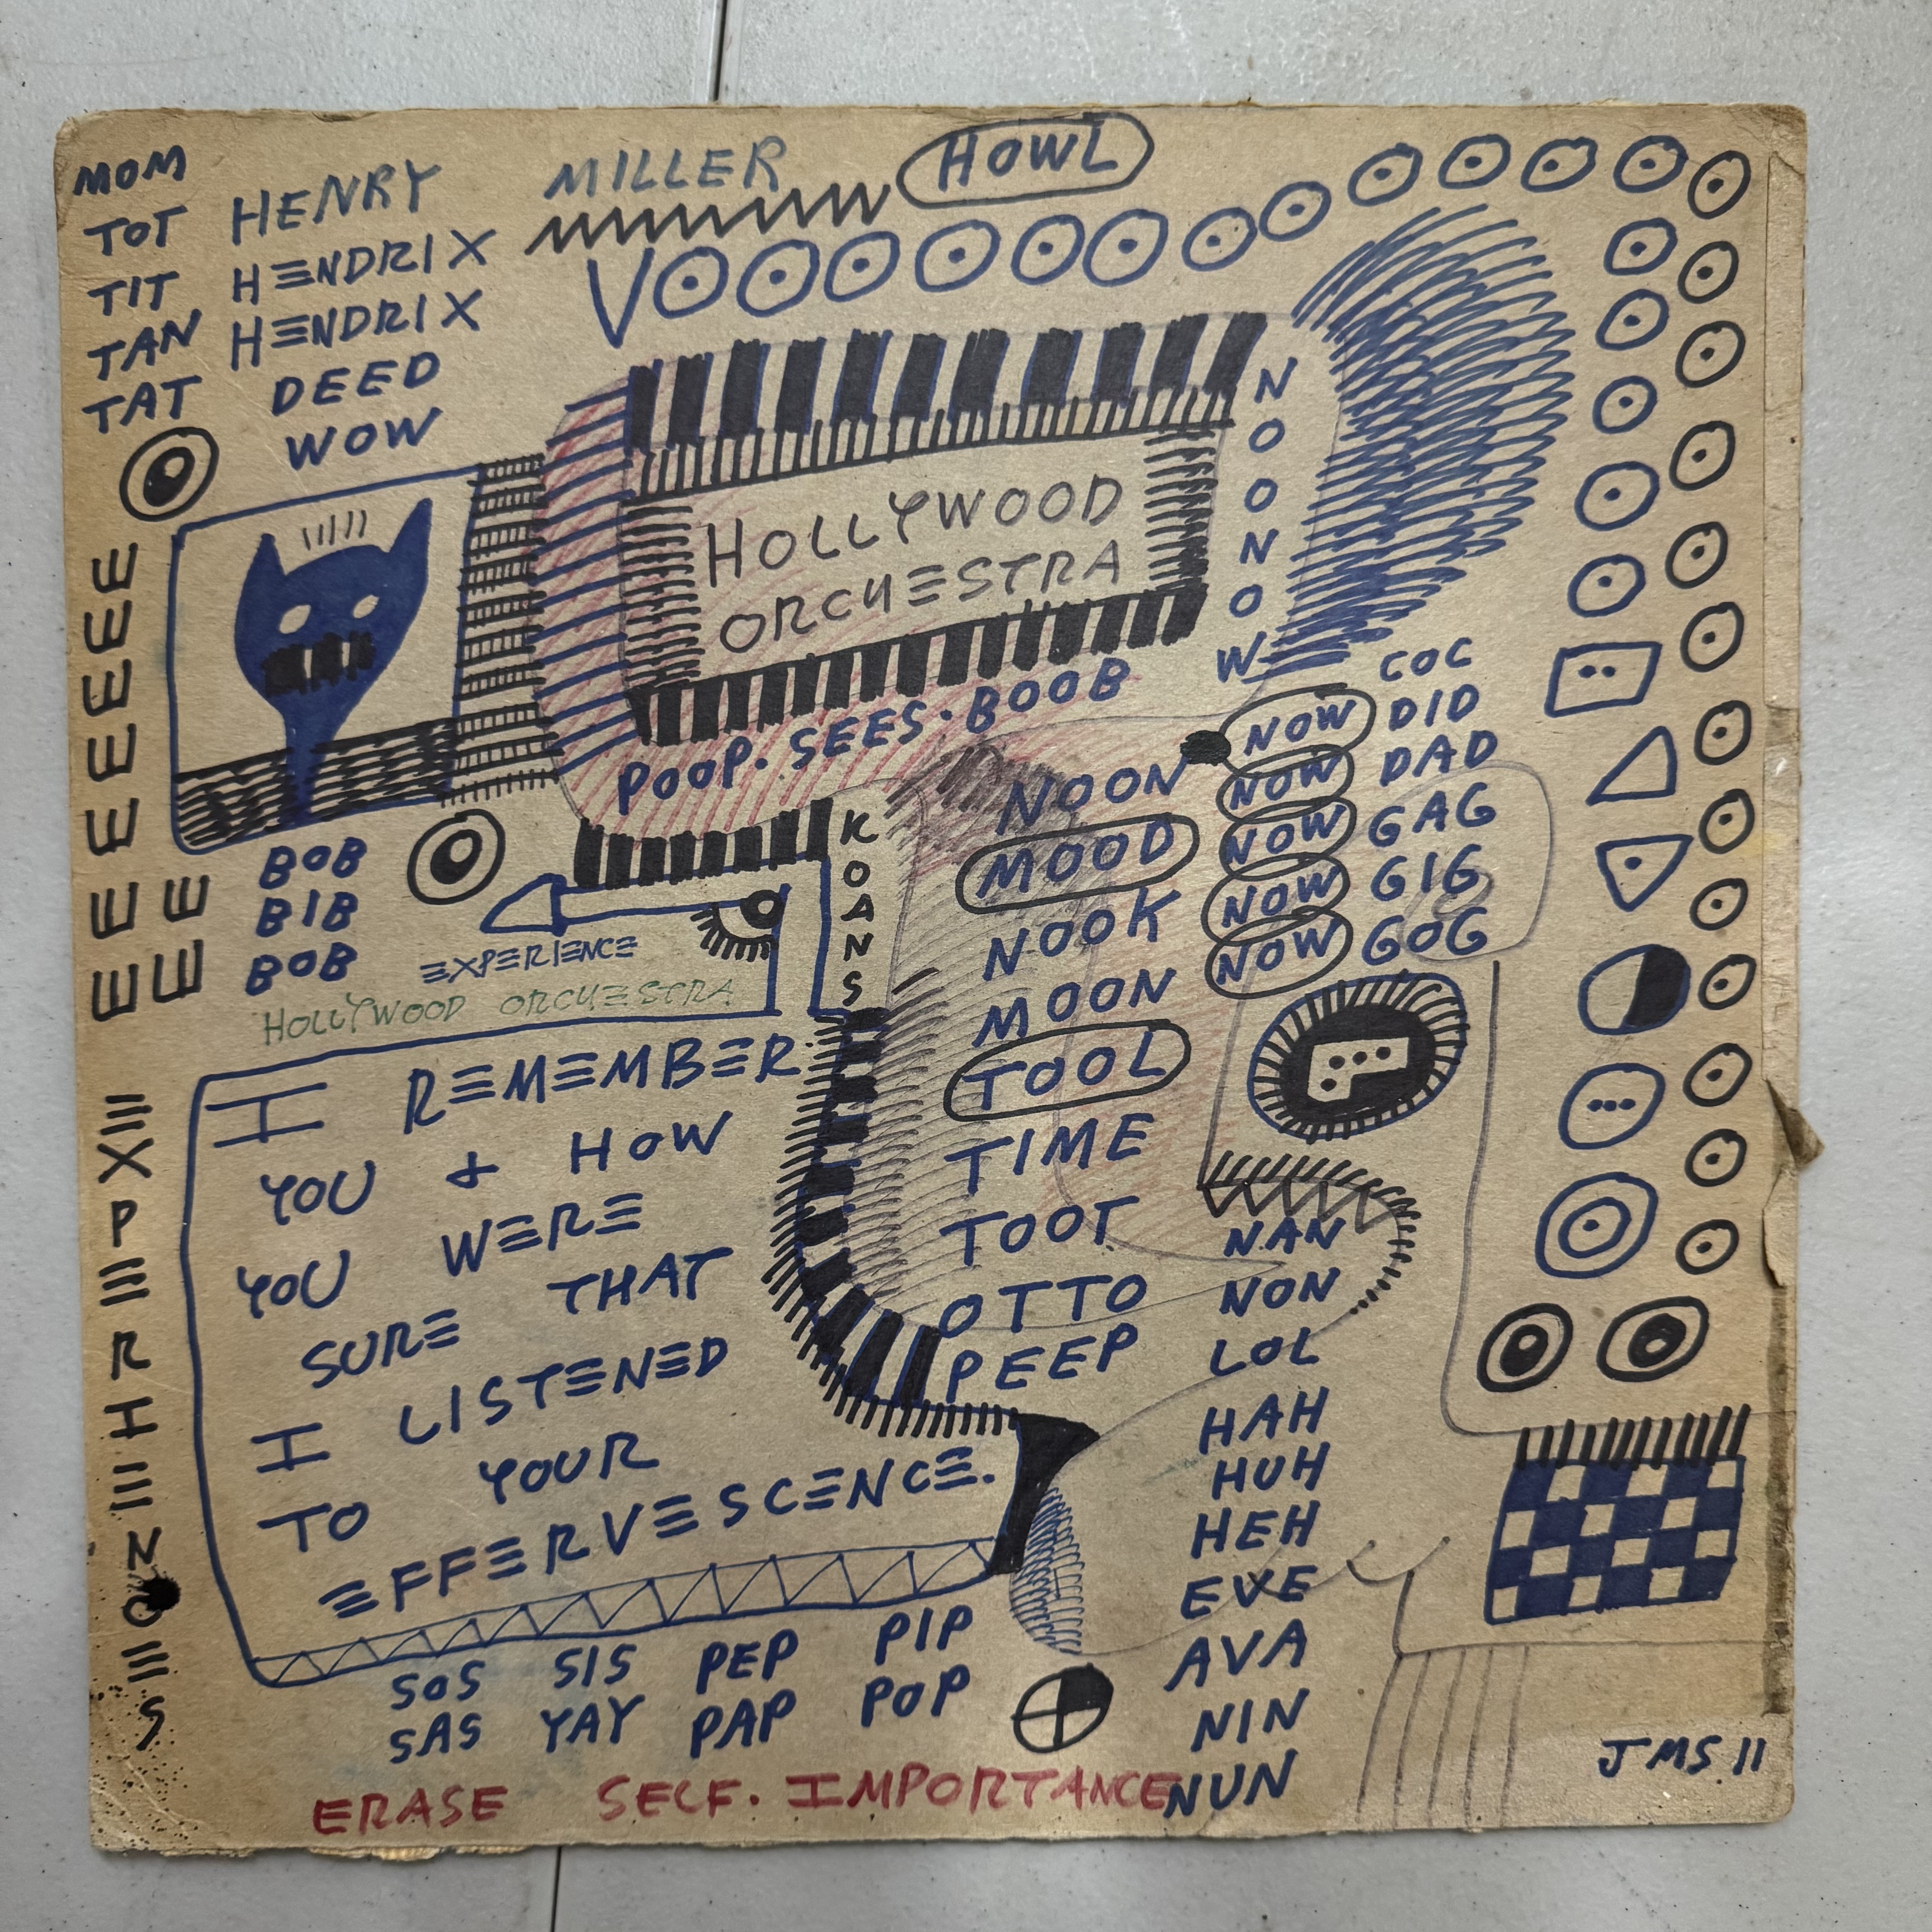 MOM
TOT
TIT
TAN
TAT
HENRY MILLER
HENDRIX
HENDRIX
DEED
WOW
HOWL
VOOOOOOOOOOOO
HOLLYWOOD
ORCHESTRA
NOONOW
POOP. SEES. BOOB
EEEEEEE
EE
BOB
BIB
BOB
EXPERIENCE
HOLLYWOOD ORCHESTRA
KOANS
NOON
MOOD
NOOK
MOON
TOOL
TIME
TOOT
OTTO
PEEP
NOW
NOW
NOW
NOW
NOW
COC
DID
DAD
GAG
GIG
GOG
EXPERIENCES
I REMEMBER
YOU & HOW
YOU WERE
SURE THAT
I LISTENED
TO YOUR
EFFERVESCENCE.
NAN
NON
LOL
HAH
HUH
HEH
EVE
AVA
NIN
NUN
SOS SIS PEP PIP
SAS YAY PAP POP
ERASE SELF. IMPORTANCE
JMS 11